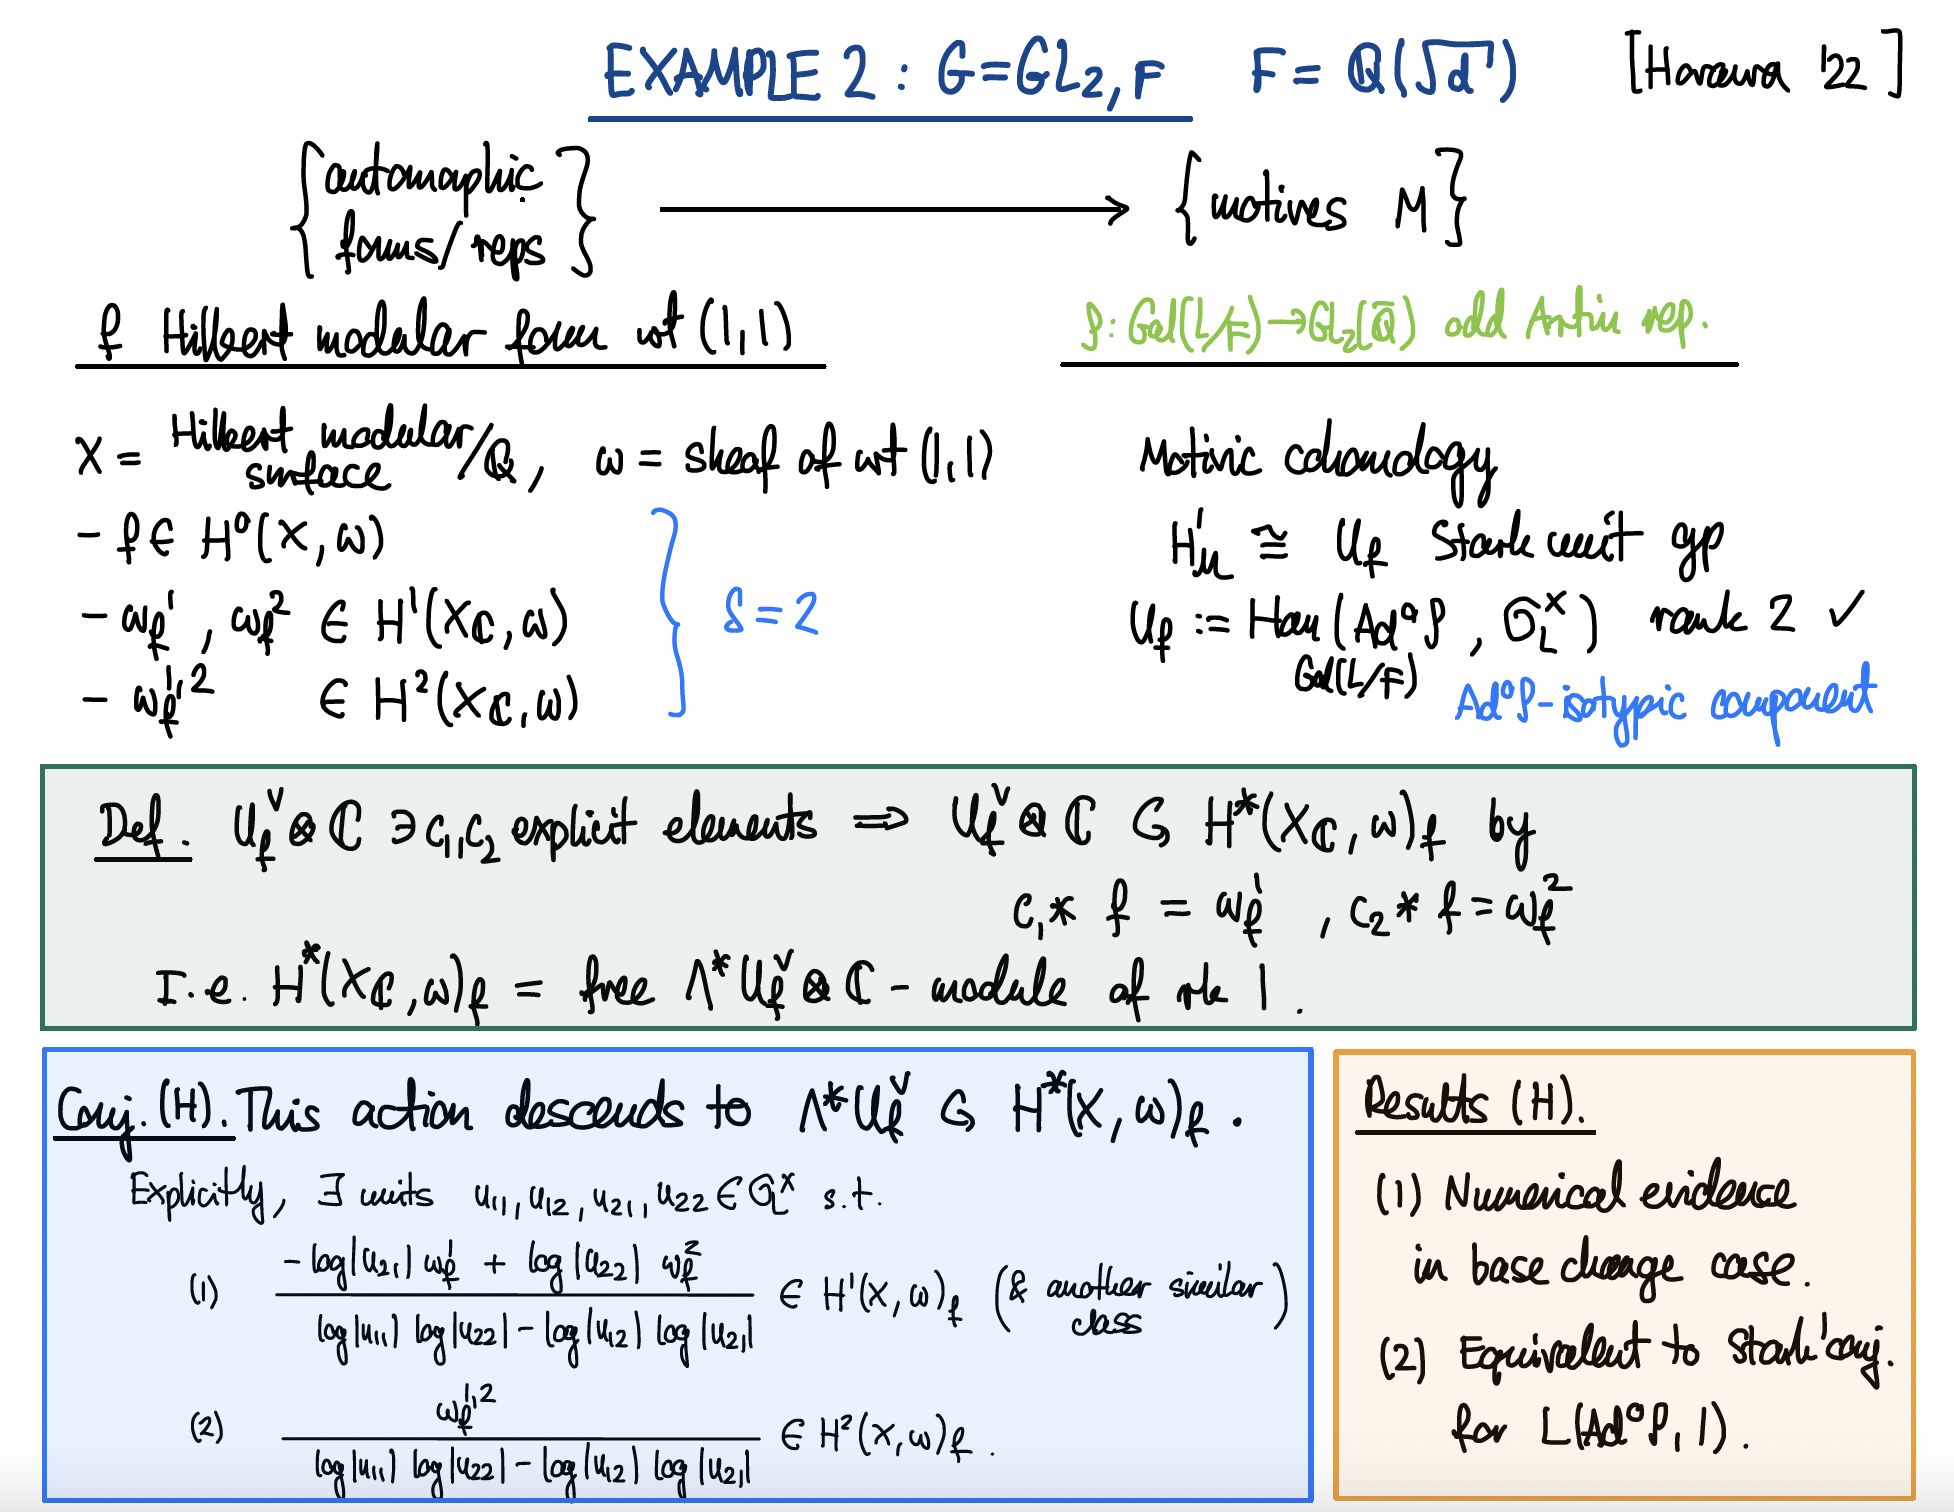 EXAMPLE 2 : G = GL₂,F   F = ℚ(√d)   [Horawa '22]
{automorphic forms/reps} ⟶ {motives M}
f Hilbert modular form wt (1,1)
ρ: Gal(L/F) → GL₂(ℚ̄) odd Artin rep.
X = Hilbert modular surface /ℚ, ω = sheaf of wt (1,1)
- f ∈ H⁰(X, ω)
- ω_f¹, ω_f² ∈ H¹(X_ℂ, ω)
- ω_f^{1,2} ∈ H²(X_ℂ, ω)
δ = 2
Motivic cohomology
H¹_M ≅ U_f Stark unit gp
U_f := Hom_{Gal(L/F)}(Ad⁰ρ, O_L^×) rank 2 ✓
Ad⁰ρ-isotypic component
Def. U_f^∨ ⊗ ℂ ∋ c₁, c₂ explicit elements ⟹ U_f^∨ ⊗ ℂ ↻ H*(X_ℂ, ω)_f by
c₁ * f = ω_f¹, c₂ * f = ω_f²
I.e. H*(X_ℂ, ω)_f = free Λ*U_f^∨ ⊗ ℂ - module of rk 1.
Conj. (H). This action descends to Λ*U_f^∨ ↻ H*(X, ω)_f.
Explicitly, ∃ units u₁₁, u₁₂, u₂₁, u₂₂ ∈ O_L^× s.t.
(1) (-log|u₂₁| ω_f¹ + log|u₂₂| ω_f²) / (log|u₁₁| log|u₂₂| - log|u₁₂| log|u₂₁|) ∈ H¹(X, ω)_f (& another similar class)
(2) ω_f^{1,2} / (log|u₁₁| log|u₂₂| - log|u₁₂| log|u₂₁|) ∈ H²(X, ω)_f.
Results (H).
(1) Numerical evidence
in base change case.
(2) Equivalent to Stark' conj.
for L(Ad⁰ρ, 1).